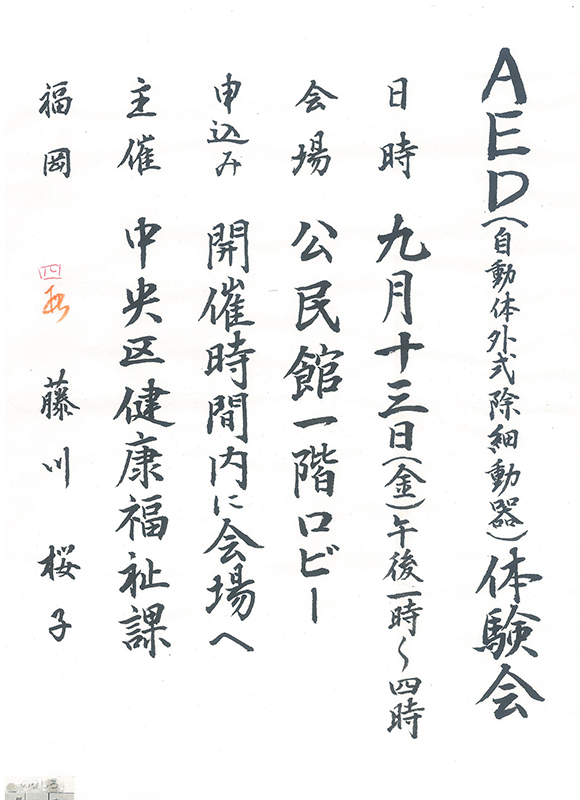 AED(自動体外式除細動器)体験会
日時 九月十三日(金)午後一時〜四時
会場 公民館一階ロビー
申込み 開催時間内に会場へ
主催 中央区健康福祉課
福岡 四 藤川桜子